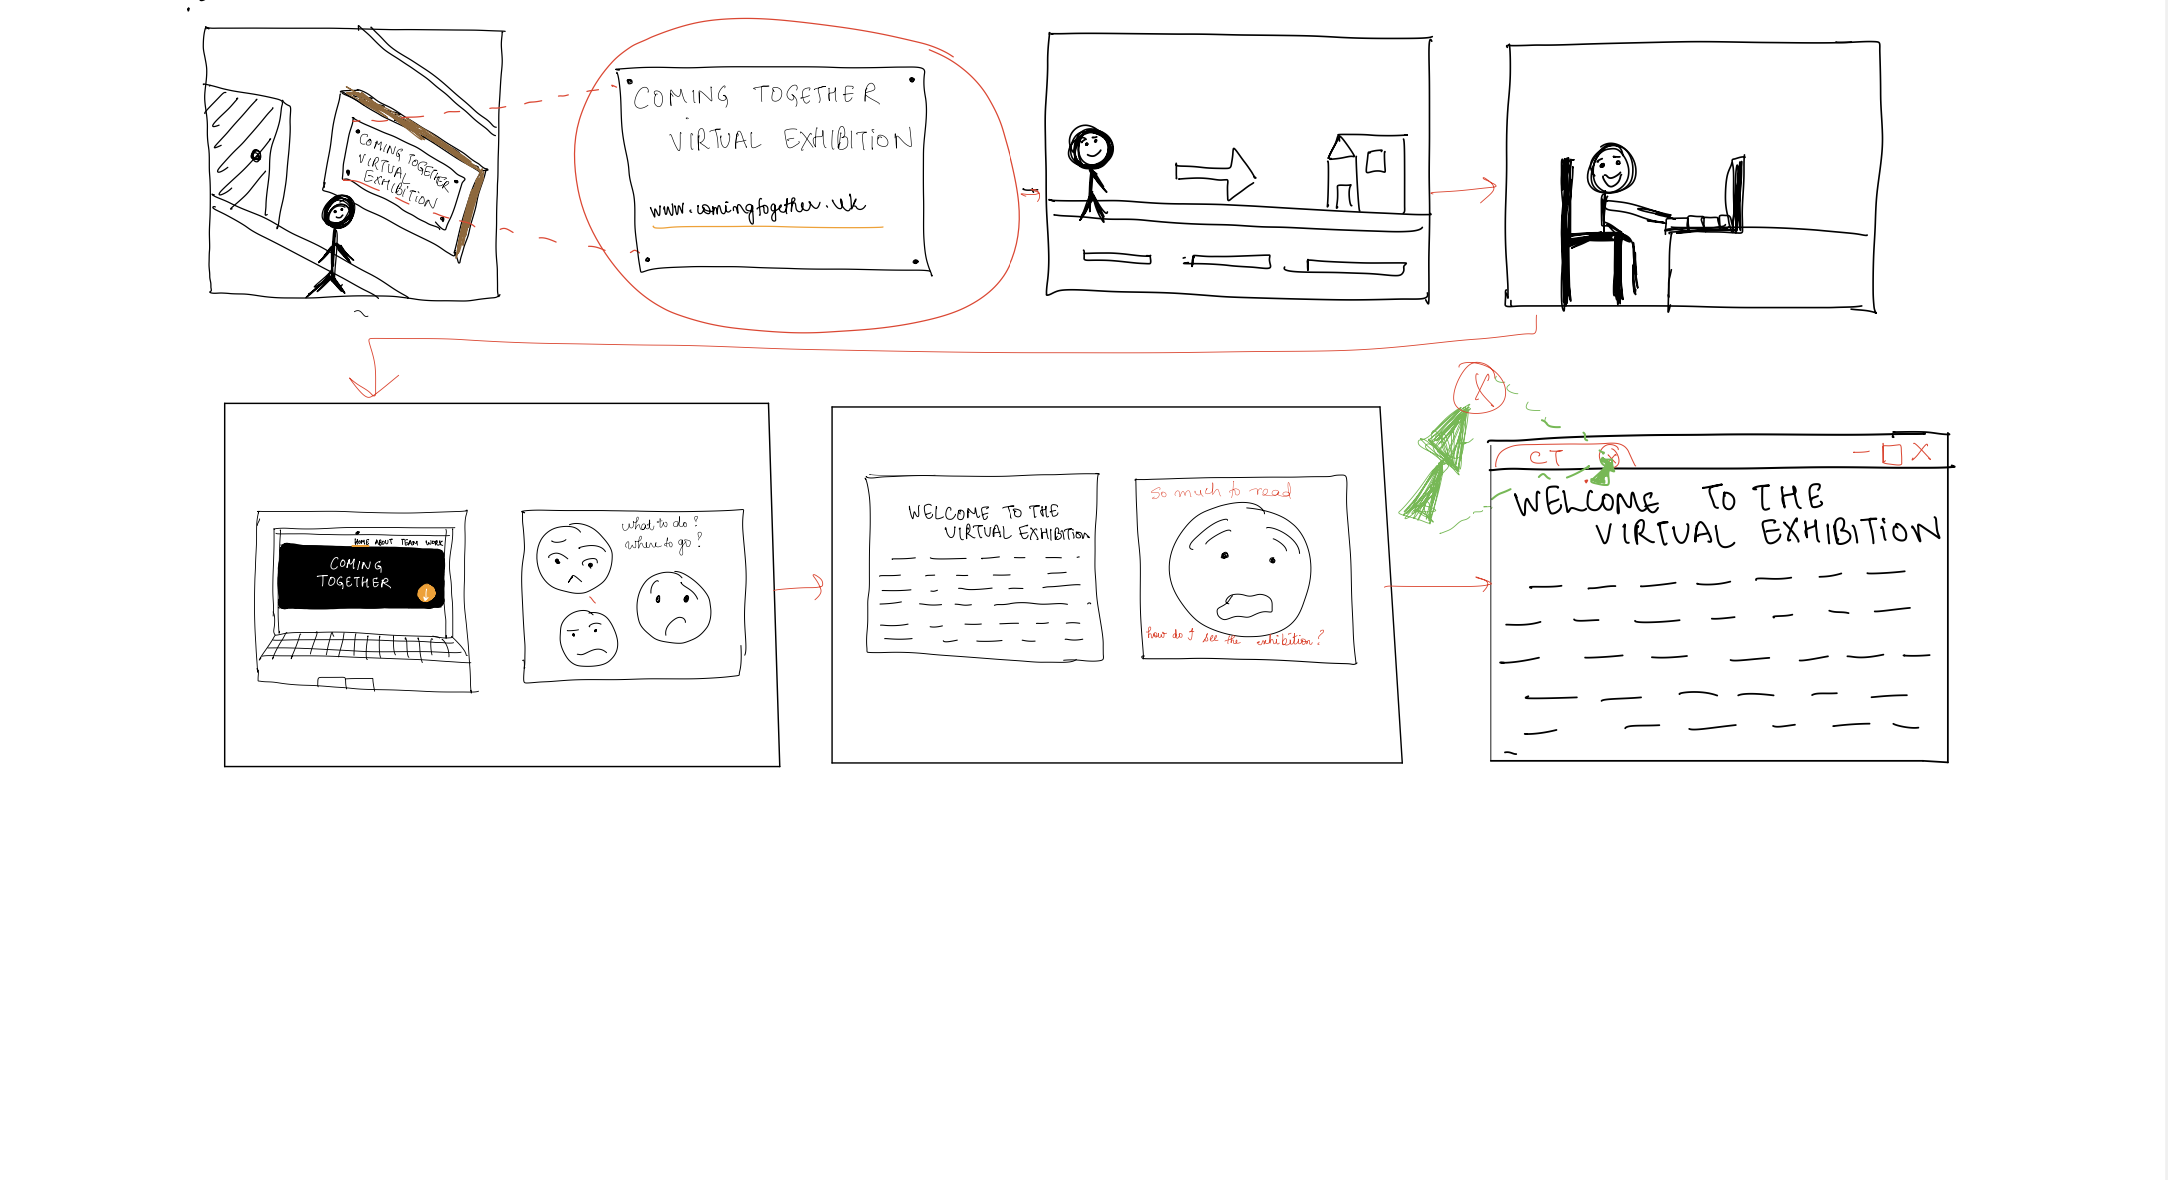 COMING TOGETHER
VIRTUAL
EXHIBITION
COMING TOGETHER
VIRTUAL EXHIBITION
www.comingtogether.uk
HOME ABOUT TEAM WORK
COMING
TOGETHER
what to do?
where to go?
WELCOME TO THE
VIRTUAL EXHIBITION
So much to read
how do I see the exhibition?
X
CT X
- X
WELCOME TO THE
VIRTUAL EXHIBITION